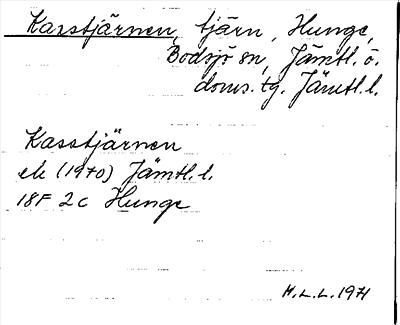 Kasstjärnen, tjärn, Hunge,
Bodsjö sn, Jämtl. ö.
doms. tg. Jämtl. l.
Kasstjärnen
ek (1970) Jämtl. l.
18F 2c Hunge
M.L.L. 1971